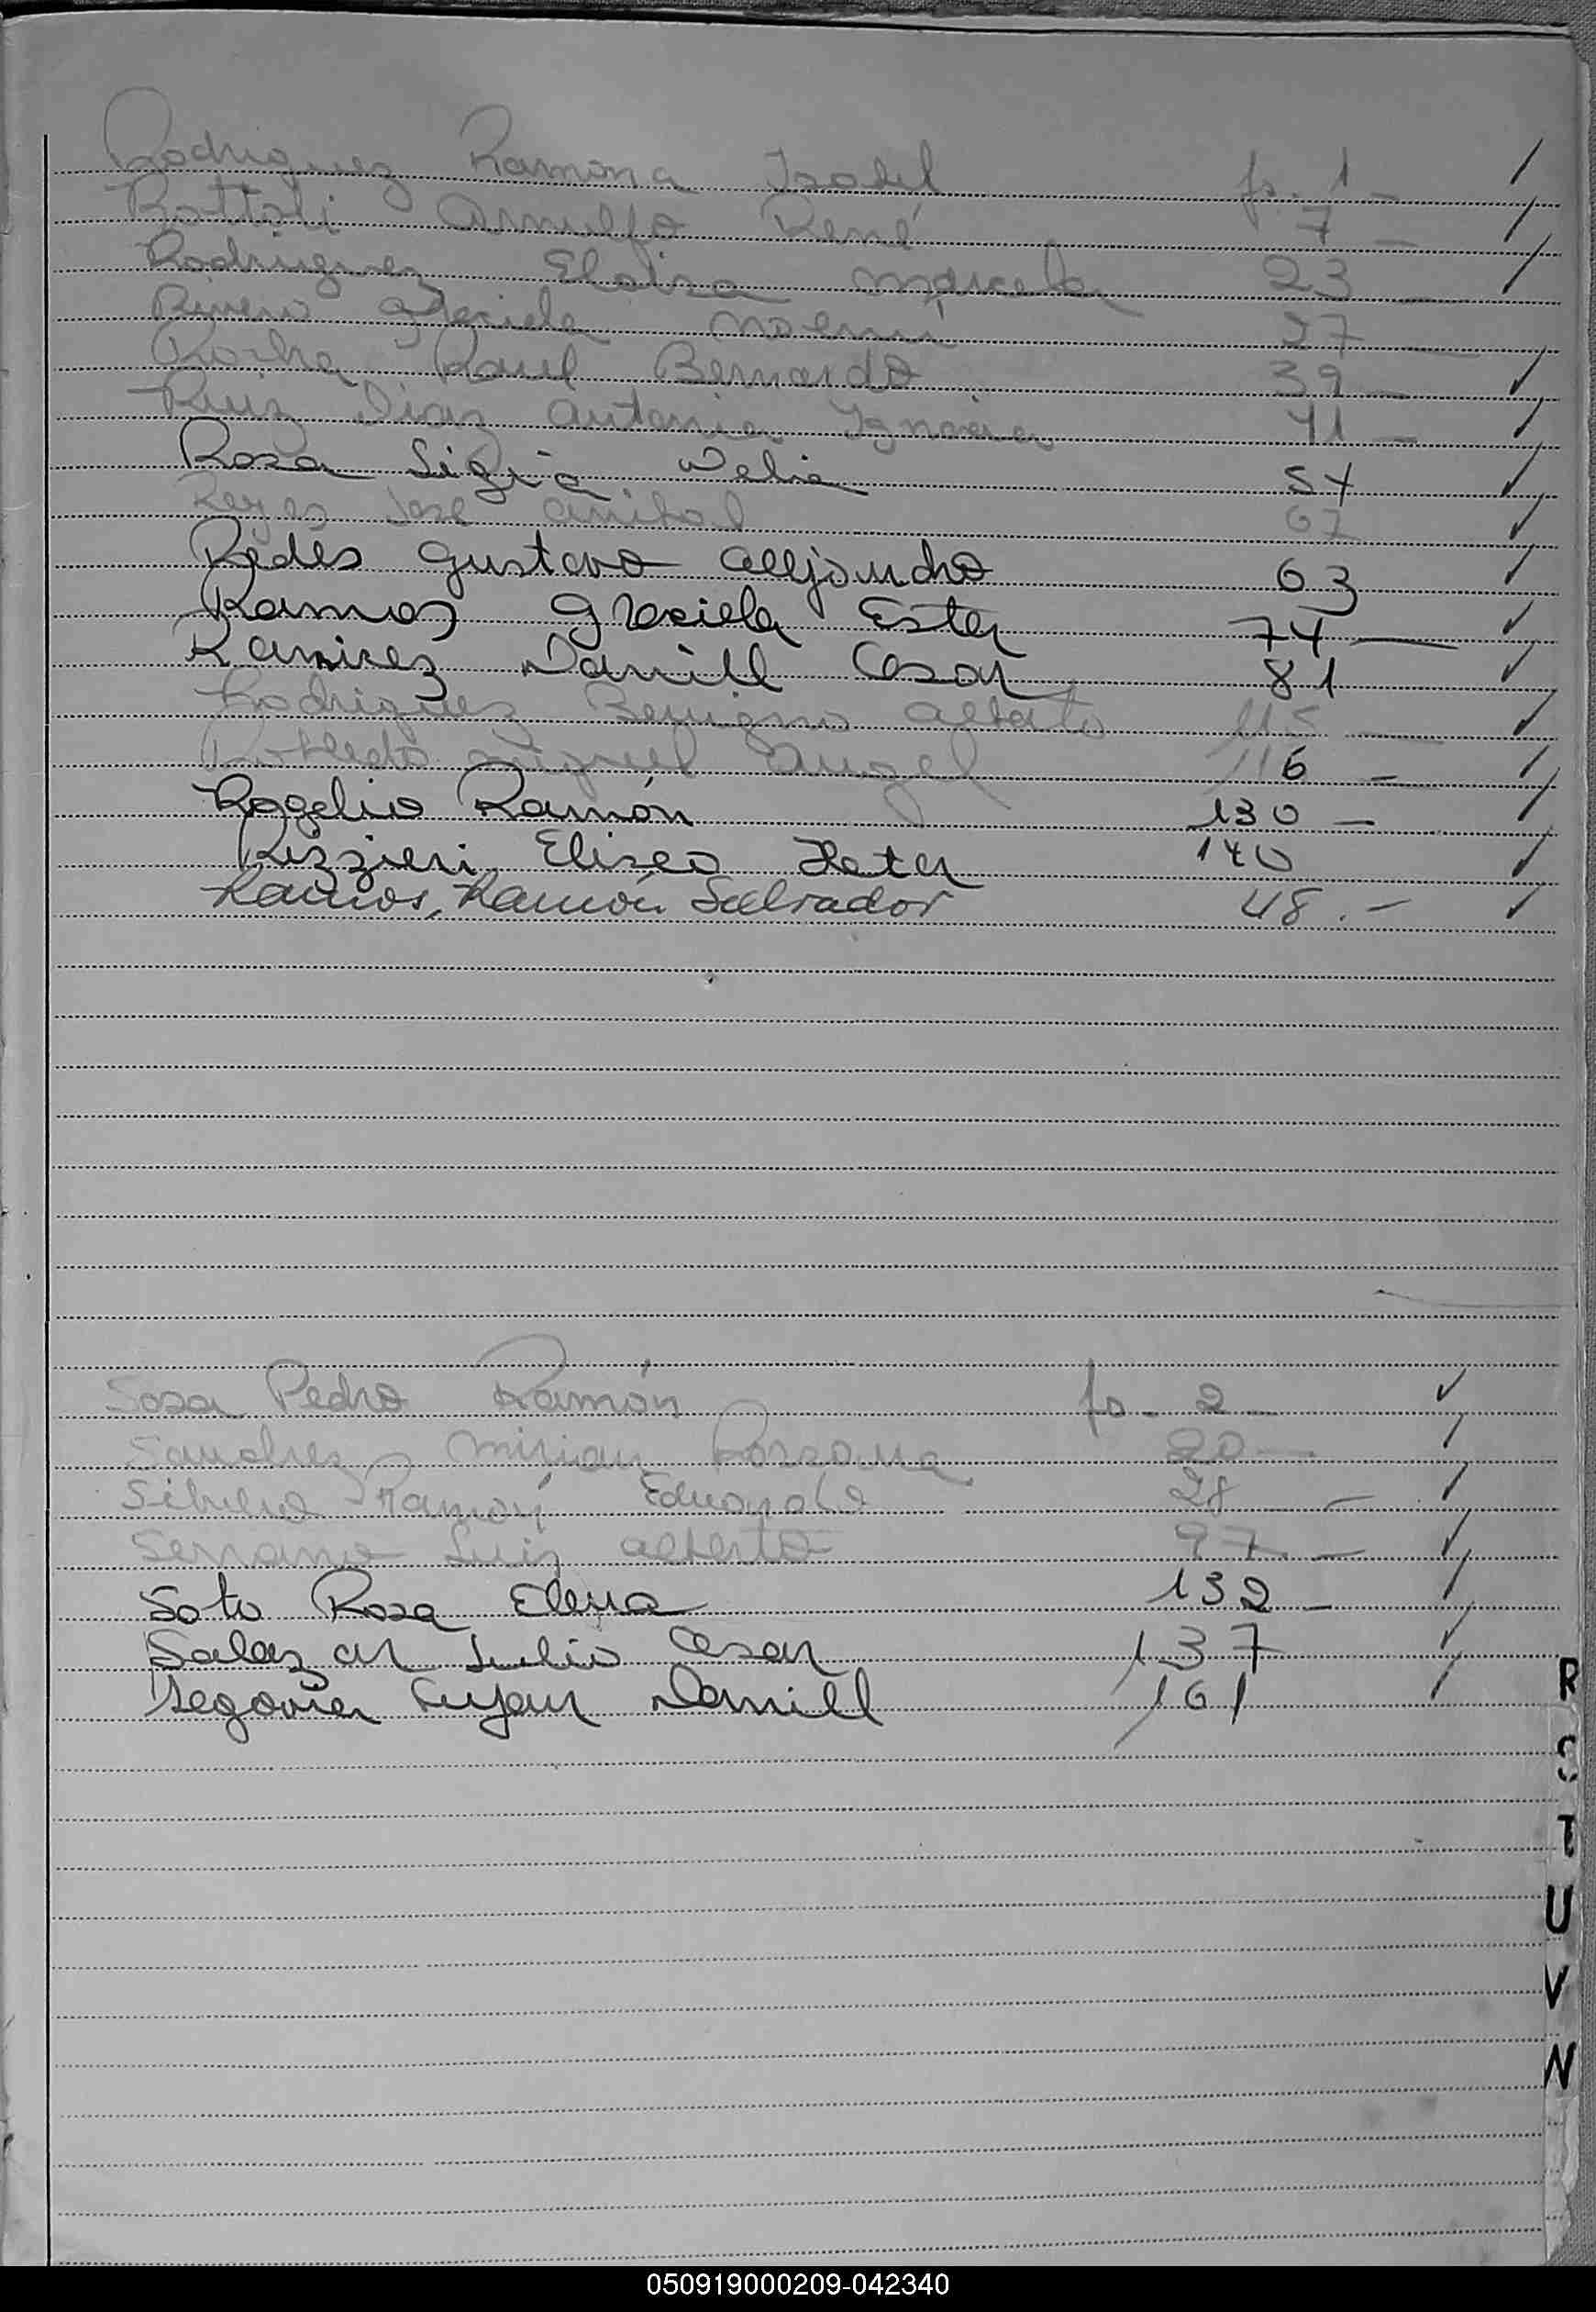 Rodriguez Ramona Isabel fo. 1 -
Rottoli Arnulfo René 7 -
Rodriguez Eloisa Marcela 23 -
Rivero Graciela Noemi 27 -
Rocha Raul Bernardo 39 -
Ruiz Diaz Antonia Ignacia 41 -
Rosa Ligia Delia 54
Reyes Jose Anibal 67
Redes Gustavo Allejandro 63
Ramos Graciela Ester 74 -
Ramirez Daniel Cesar 81
Rodriguez Benigno Alberto 115 -
Robledo Miguel Angel 116 -
Rogelio Ramón 130 -
Rizzieri Eliseo 140
Ramos, Ramón Salvador 48.-
Sosa Pedro Ramón fo - 2 -
Sanchez Mirian Rossana 20 -
Ramón Eduardo 28 -
Serrano Luis Alberto 97 -
Soto Rosa Elena 132 -
Salazar Julio Cesar 137
Segovia Lujan Daniel 161
R
S
T
U
V
N
050919000209-042340